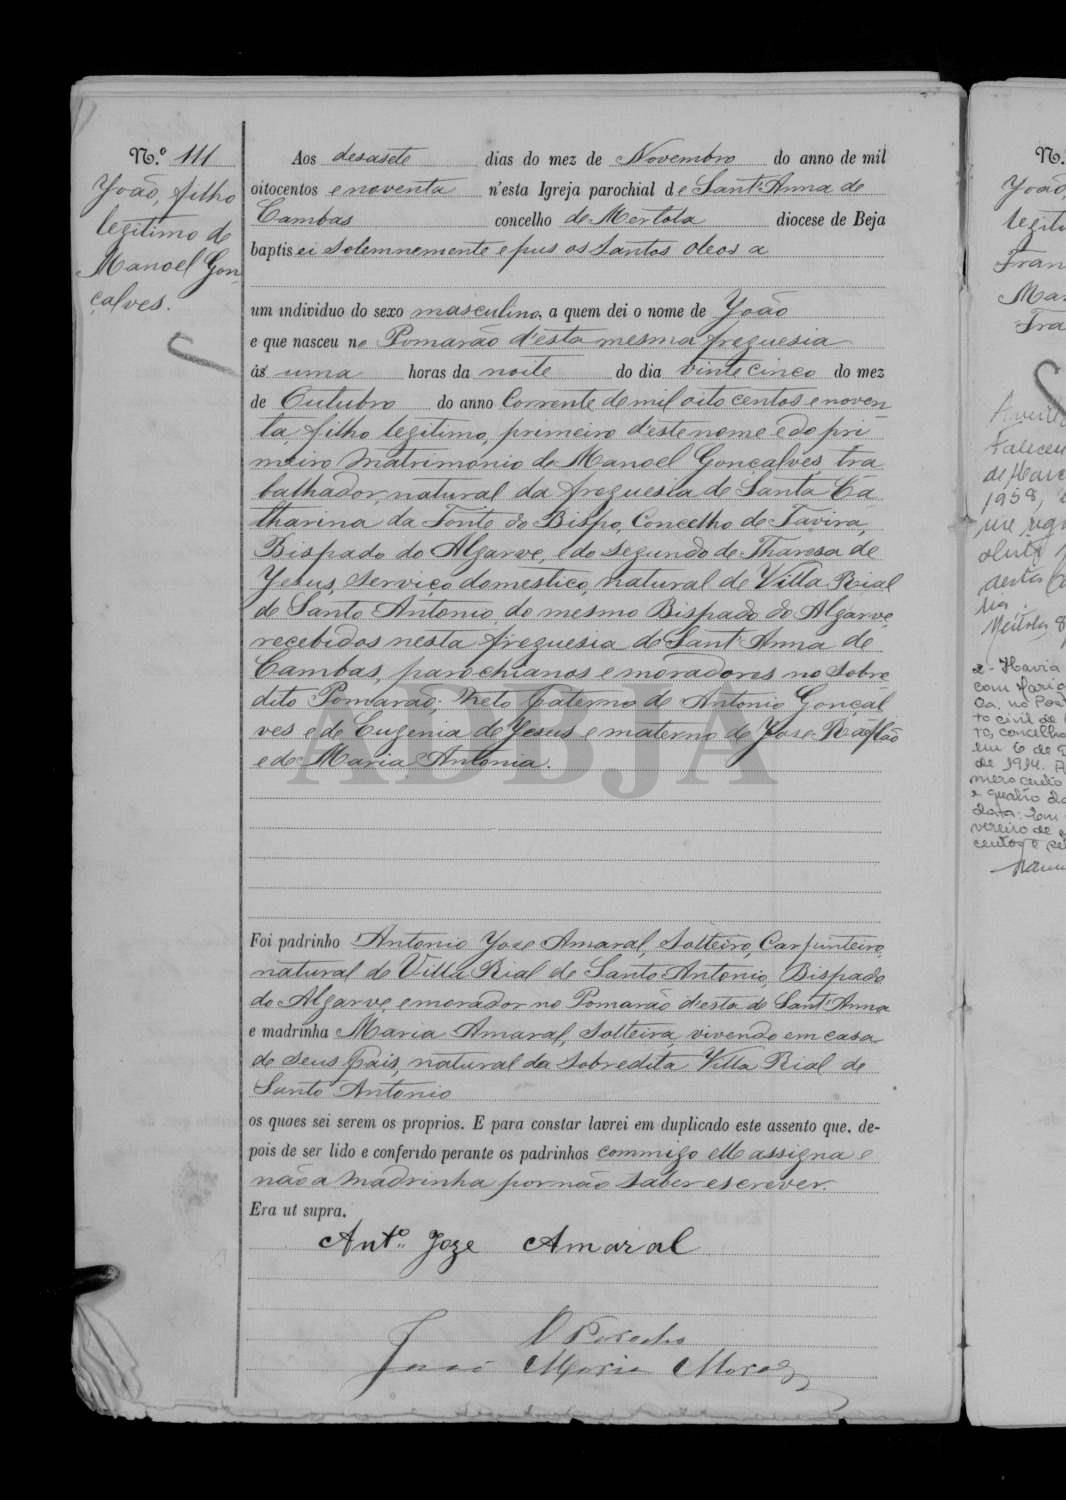 N.º 111
João, filho
legitimo de
Manoel Gon
çalves.
Aos desasete dias do mez de Novembro do anno de mil
oitocentos e noventa n'esta Igreja parochial de Sant'Anna de
Cambas concelho de Mertola diocese de Beja
baptisei solemnemente e pus os Santos Oleos a
um individuo do sexo masculino, a quem dei o nome de João
e que nasceu no Pomarão d'esta mesma freguesia
ás uma horas da noite do dia vinte cinco do mez
de Outubro do anno Corrente de mil oito centos e noven
ta, filho legitimo, primeiro d'este nome e do pri
meiro Matrimonio de Manoel Gonçalves, tra
balhador, natural da freguesia de Santa Ca
tharina da Fonte do Bispo, Concelho de Tavira,
Bispado do Algarve, e do segundo de Tharesa de
Jesus, serviço domestico, natural de Villa Rial
de Santo Antonio, do mesmo Bispado do Algarve,
recebidos nesta freguesia de Sant'Anna de
Cambas, parochianos e moradores no sobre
dito Pomarão; Neto paterno de Antonio Gonçal
ves e de Eugenia de Jesus e materno de Jose
e de Maria Antonia.
ADBJA
Foi padrinho Antonio Jose Amaral, Solteiro, Carpinteiro,
natural de Villa Rial de Santo Antonio, Bispado
do Algarve, e morador no Pomarão d'esta de Sant'Anna
e madrinha Maria Amaral, Solteira, vivendo em casa
de seus pais, natural da sobredita Villa Rial de
Santo Antonio
os quaes sei serem os proprios. E para constar lavrei em duplicado este assento que, de-
pois de ser lido e conferido perante os padrinhos commigo elle assigna e
não a Madrinha por não saber escrever.
Era ut supra.
Ant.º Joze Amaral
O Parocho
João Maria
N.
João,
legiti
Fran
Fra
faleceu
1958,
2 - Havia
com
to civil de
to, concelho
em 6 de
de 1914.
mero cento
e quatro da
data: Em
vereiro de